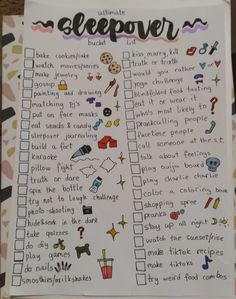 ultimate
sleepover
bucket list
bake cookies/cake
watch movies/series
make jewelry
gossip
painting and drawing
matching pj's
put on face masks
eat snacks & candy
sleepover journaling
build a fort
karaoke
pillow fight
truth or dare
spin the bottle
try not to laugh challenge
photo-shooting
hide&seek in the dark
take quizzes
do diy
play games
do nails
smoothies/milkshakes
kiss, marry, kill
truth or truth
would you rather
yoga challenge
blindfolded food tasting
eat it or wear it
who's most likely to
prankcalling people
facetime people
call someone at the s.t.
talk about feelings
play ouija board
play charlie charlie
color a coloring book
shopping spree
pranks
stay up all night
watch the sunset/rise
make tiktok recipes
make tiktoks
try weird food combos